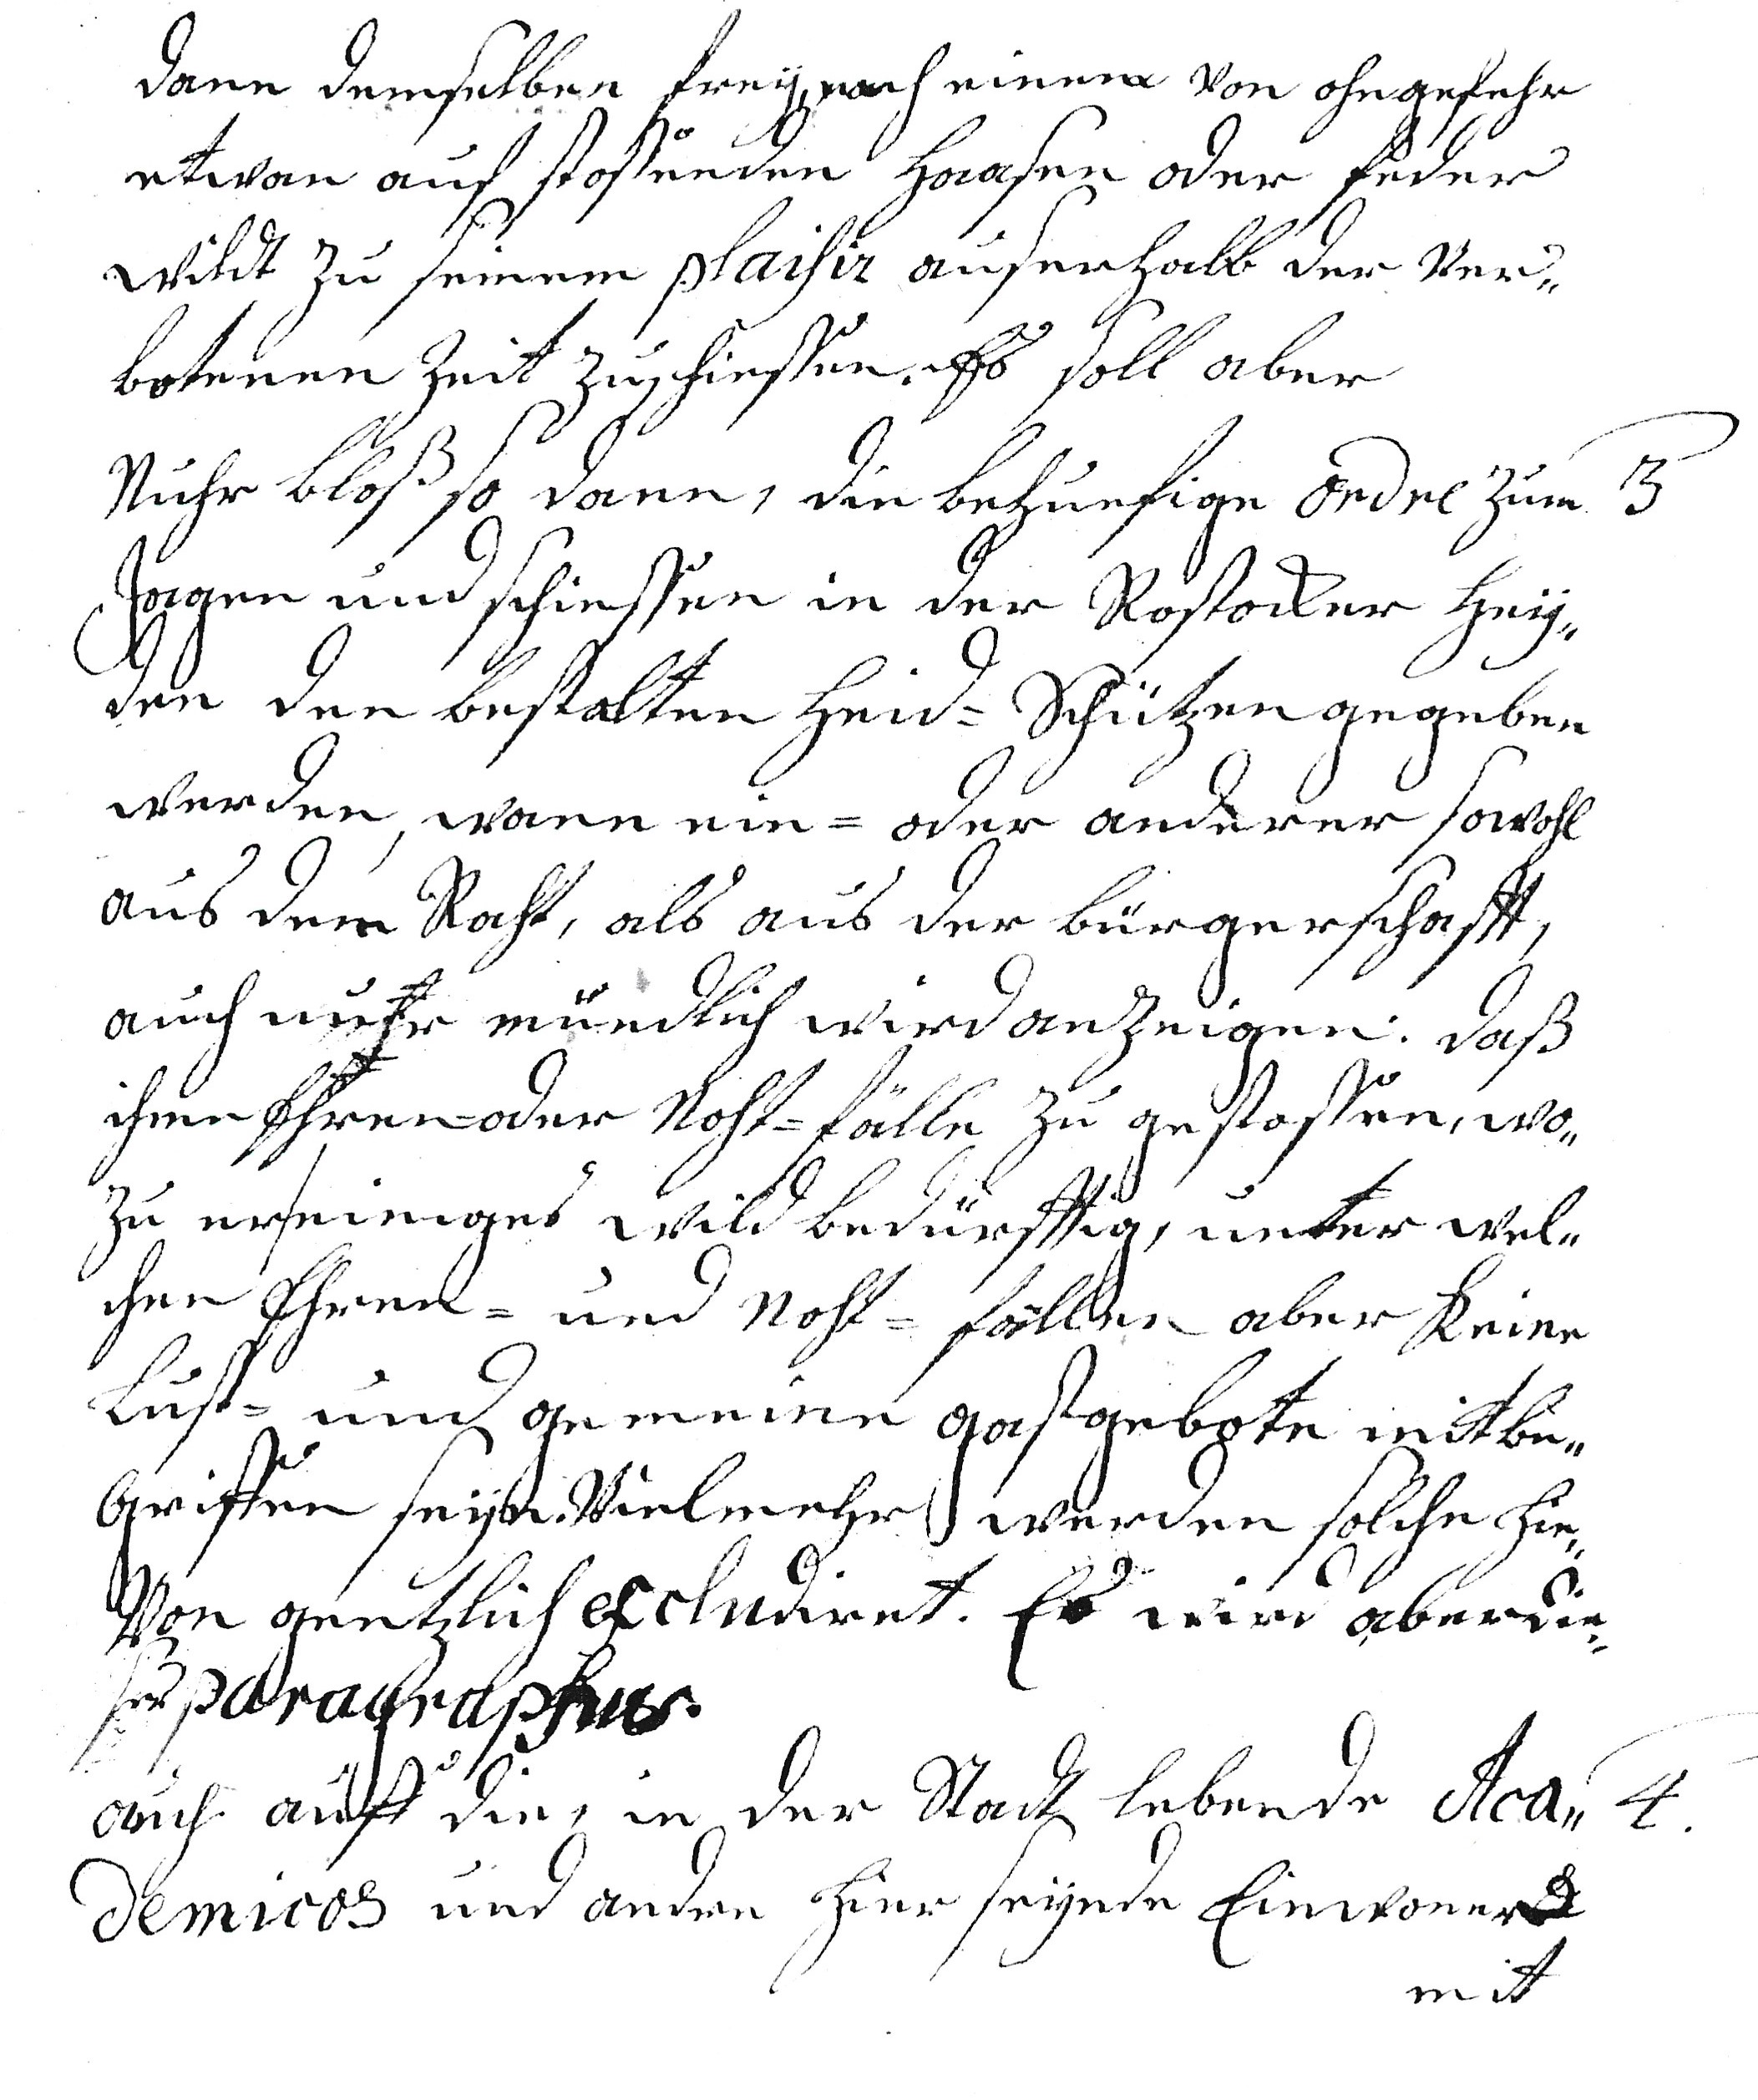 dann demselben frey, nach einem von ohngefehr
etwan auf stossenden Haasen oder feder
wildt zu seinem plaisir auserhalb der Ver„
botenen Zeit zuschiessen. Es soll aber
Nuhr bloß so dann, die behuefige ordre zum 3
Jagen und schiessen in der Rostocker Hey„
den den bestalten Heid= Schützen gegeben
werden, wann ein= oder anderer sowohl
aus dem Raht, als aus der bürgerschafft,
auch nuhr mündlich wird anzeigen. daß
ihme Ehren= oder Noht=fälle zu gestossen, wo„
zu er einiges wild bedürfftig, unter wel„
chen Ehren= und Noht= fällen aber keine
Lust= und gemeine gastgebote mit be„
griffen seyn. Vielmehr werden solche hie„
Von gentzlich excludiret. Es wird aber die„
ser paragraphus.
auch auff die, in der Stadt lebende Aca„ 4.
demicos und andre hier seynde Einwoner
mit